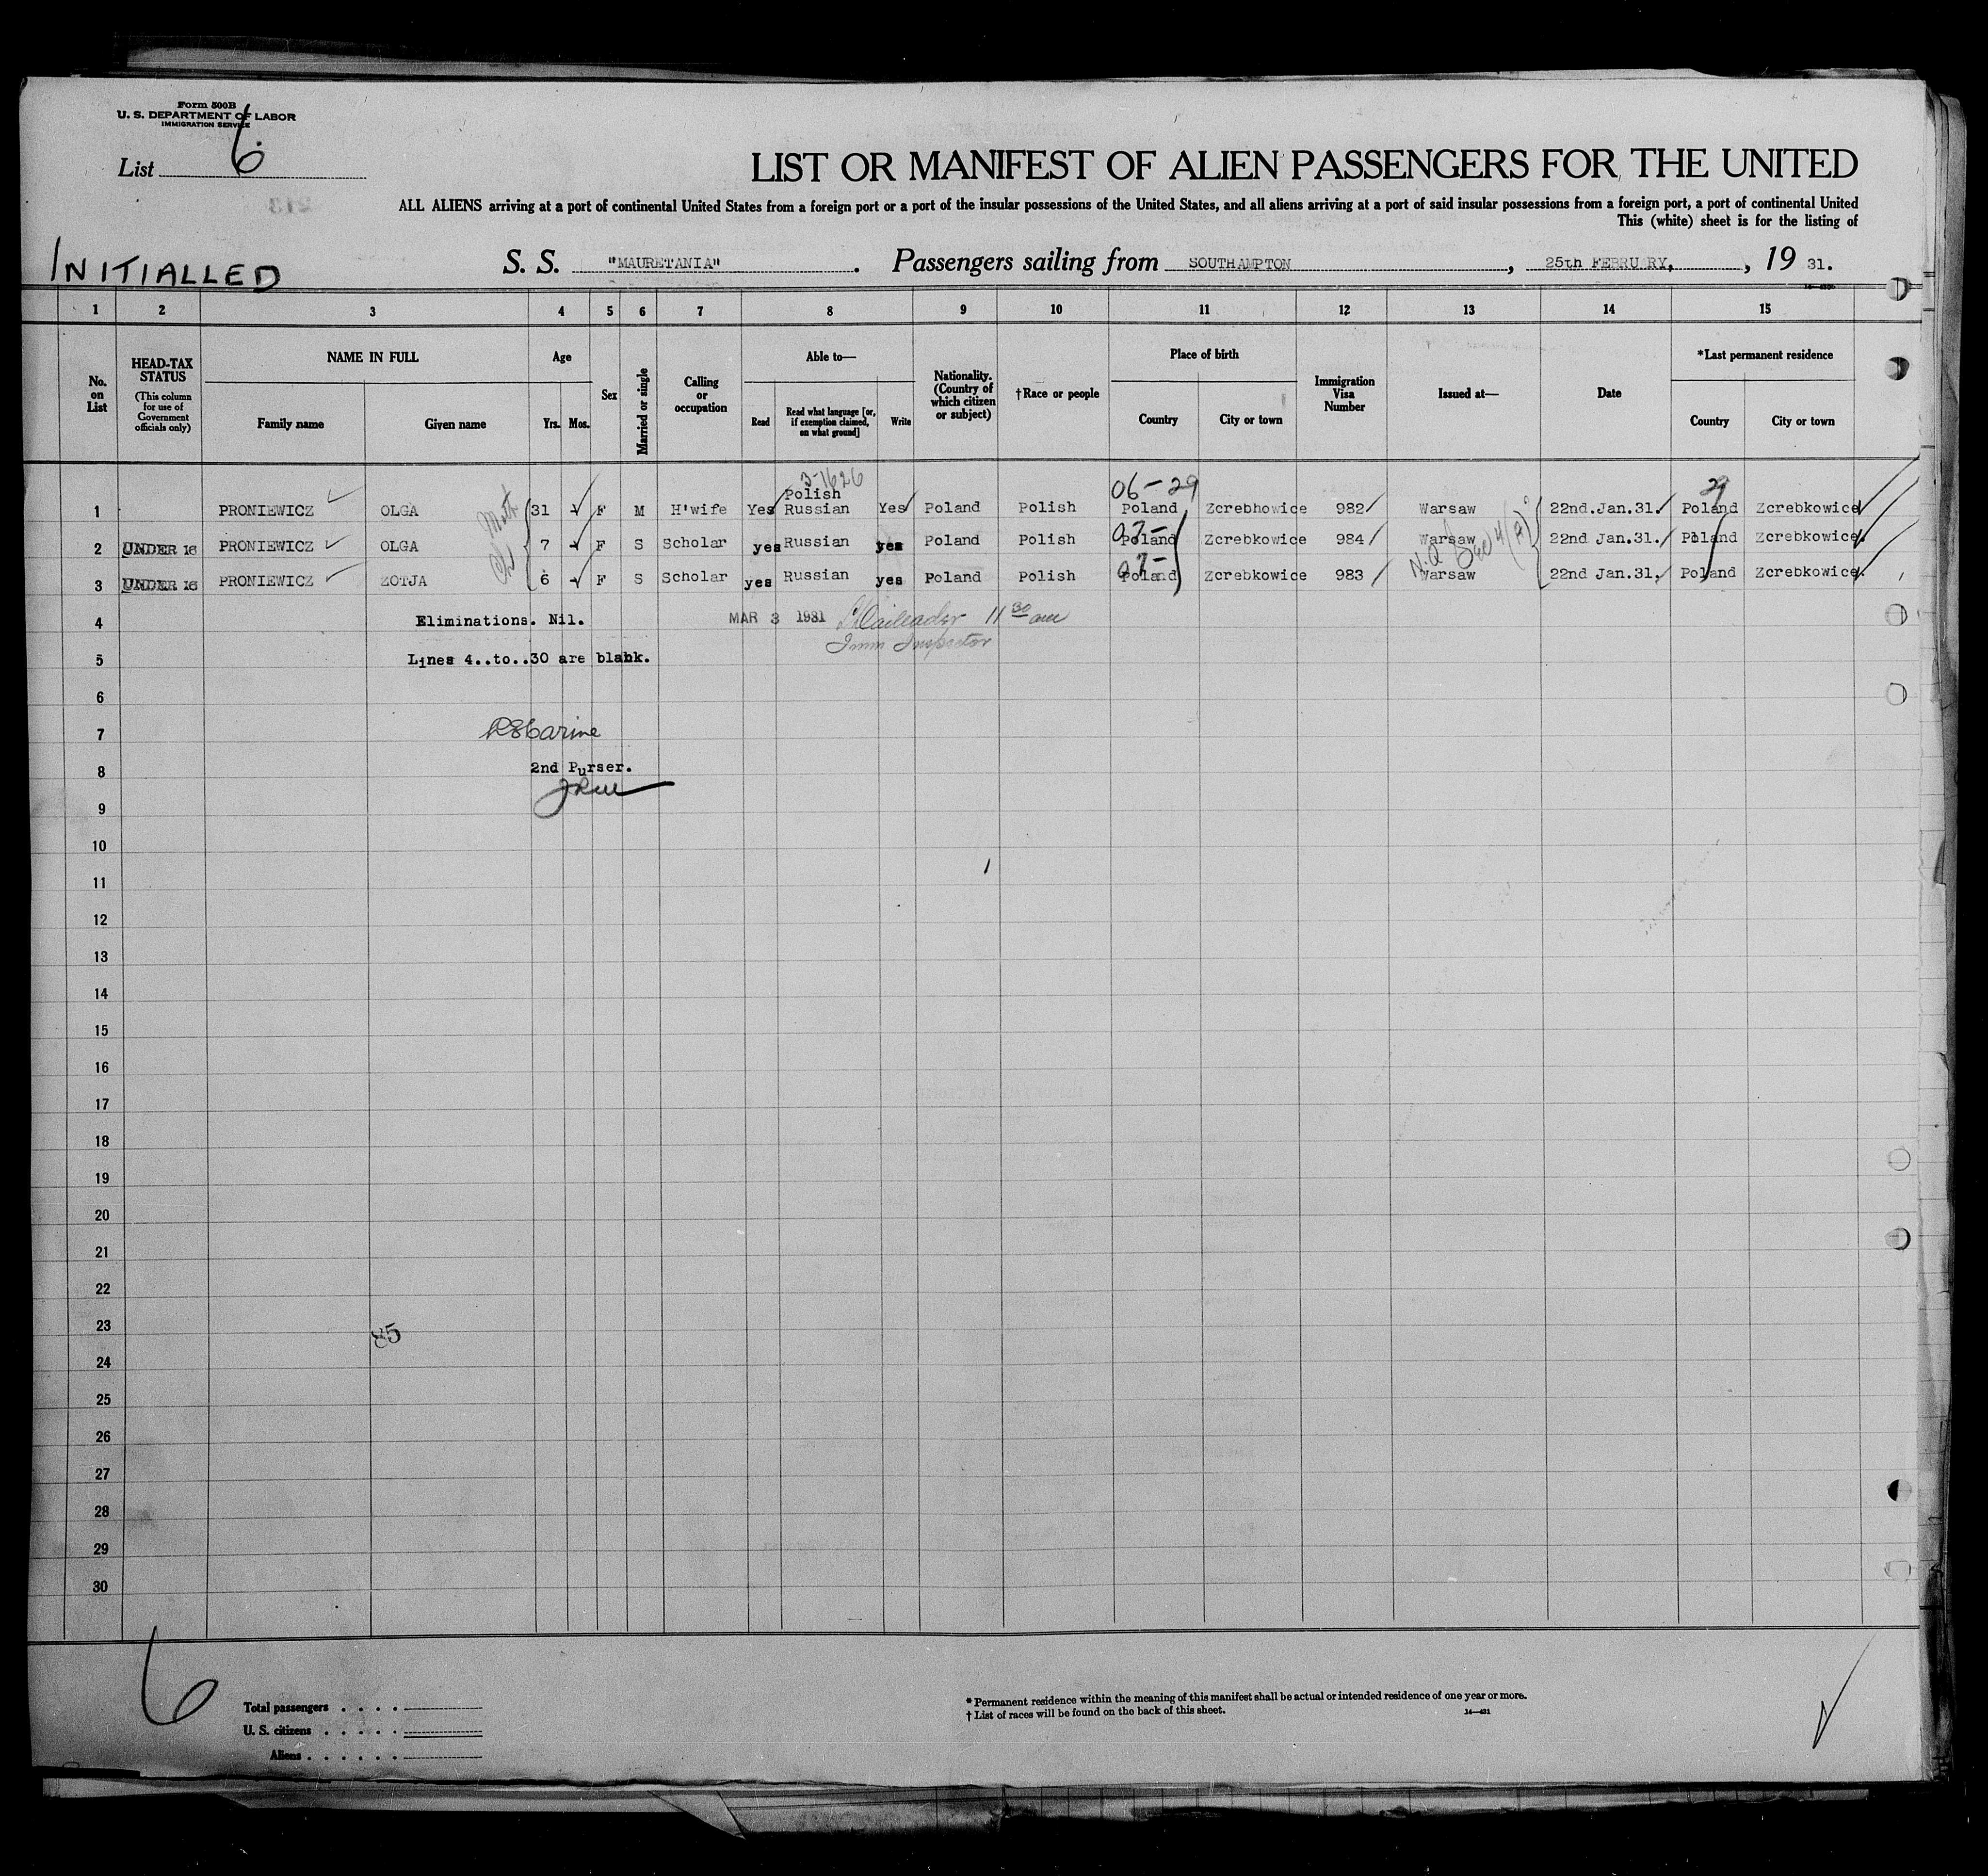 Form 500B
U. S. DEPARTMENT OF LABOR
IMMIGRATION SERVICE
List 6
LIST OR MANIFEST OF ALIEN PASSENGERS FOR THE UNITED
ALL ALIENS arriving at a port of continental United States from a foreign port or a port of the insular possessions of the United States, and all aliens arriving at a port of said insular possessions from a foreign port, a port of continental United
This (white) sheet is for the listing of
INITIALLED
S. S. "MAURETANIA". Passengers sailing from SOUTHAMPTON, 25th FEBRUARY, , 19 31.
1 2 3 4 5 6 7 8 9 10 11 12 13 14 15
No. on List
HEAD-TAX STATUS (This column for use of Government officials only)
NAME IN FULL
Family name
Given name
Age
Yrs. Mos.
Sex
Married or single
Calling or occupation
Able to—
Read
Read what language [or, if exemption claimed, on what ground]
Write
Nationality. (Country of which citizen or subject)
†Race or people
Place of birth
Country
City or town
Immigration Visa Number
Issued at—
Date
*Last permanent residence
Country
City or town
3-1626
06-29
29
1 PRONIEWICZ OLGA 31 F M H'wife Yes Polish Russian Yes Poland Polish Poland Zcrebhowice 982 Warsaw 22nd.Jan.31. Poland Zcrebkowice
2 UNDER 16 PRONIEWICZ OLGA 7 F S Scholar yes Russian yes Poland Polish Poland Zcrebkowice 984 Warsaw 22nd Jan.31. Poland Zcrebkowice.
3 UNDER 16 PRONIEWICZ ZOTJA 6 F S Scholar yes Russian yes Poland Polish Poland Zcrebkowice 983 Warsaw 22nd Jan.31. Poland Zcrebkowice.
4 Eliminations. Nil. MAR 3 1931 11 30 am
Imm Inspector
5 Lines 4..to..30 are blank.
6
7
8 2nd Purser.
9
10
11
12
13
14
15
16
17
18
19
20
21
22
23
85
24
25
26
27
28
29
30
6
Total passengers . . . .
U. S. citizens . . . . .
Aliens . . . . . .
* Permanent residence within the meaning of this manifest shall be actual or intended residence of one year or more.
† List of races will be found on the back of this sheet.
14—431